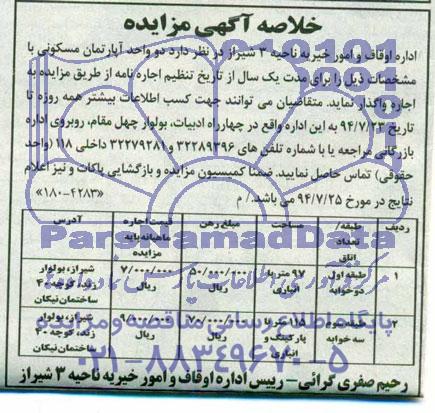 خلاصه آگهی مزایده
اداره اوقاف و امور خیریه ناحیه ۳ شیراز در نظر دارد دو واحد آپارتمان مسکونی با
مشخصات ذیل را برای مدت یک سال از تاریخ تنظیم اجاره نامه از طریق مزایده به
اجاره واگذار نماید. متقاضیان می توانند جهت کسب اطلاعات بیشتر همه روزه تا
تاریخ ۹۴/۷/۲۳ به این اداره واقع در چهارراه ادبیات، بولوار چهل مقام، روبروی اداره
بازرگانی مراجعه یا با شماره تلفن های ۳۲۲۸۹۳۹۶ و ۳۲۲۷۹۲۸۱ داخلی ۱۱۸ (واحد
حقوقی) تماس حاصل نمایید. ضمنا کمیسیون مزایده و بازگشایی پاکات و نیز اعلام
نتایج در مورخ ۹۴/۷/۲۵ می باشد./ م
«۱۸۰-۴۲۸۳»
ردیف طبقه/ تعداد اتاق مساحت مبلغ رهن قیمت اجاره ماهیانه پایه مزایده آدرس
۱ طبقه اول دوخوابه ۹۷ متر با انباری ۵۰/۰۰۰/۰۰۰ ریال ۷/۰۰۰/۰۰۰ ریال شیراز، بولوار زند، کوچه ۴۰ ساختمان نیکان
۲ طبقه سوم سه خوابه ۱۱۵ متر با پارکینگ و انباری ۷۰/۰۰۰/۰۰۰ ریال ۹/۰۰۰/۰۰۰ ریال شیراز، بولوار زند، کوچه ۴۰ ساختمان نیکان
رحیم صفری گرائی – رییس اداره اوقاف و امور خیریه ناحیه ۳ شیراز
ParsNamadData
پایگاه اطلاع رسانی مناقصه و مزایده
۰۲۱-۸۸۳۴۹۶۷۰-۵